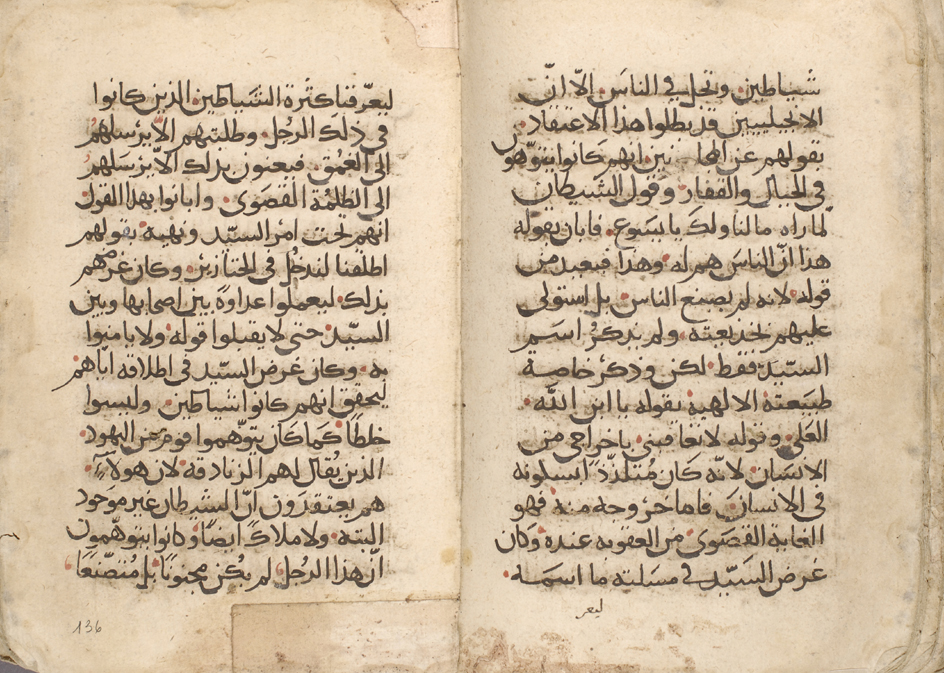 شياطين وتحل في الناس إلا أن
الانجيليين قد بطلوا هذا الاعتقاد
بقولهم عن المجانين انهم كانوا يتوهون
في الجبال والقفار وقول الشيطان
لما راه مالنا ولك يا يسوع فابان بقوله
هذا ان الناس هم له وهذا فبعيد من
قوله لانه لم يصنع الناس بل استولى
عليهم بخديعته ولم يذكر اسم
السيد فقط لكن وذكر خاصة
طبيعته الالهية بقوله يا ابن الله
العلي وقوله لا تعاقبني باخراجي من
الانسان لانه كان متلذذا بسكونه
في الانسان فاما خروجه منه فهو
الغاية القصوى من العقوبه عنده وكان
غرض السيد في مسلته ما اسمه
ليعر
ليعرفنا كثرة الشياطين الذين كانوا
في ذلك الرجل وطلبتهم الا يرسلهم
الى العمق فيعنون بذلك الا يرسلهم
الى الظلمة القصوى وابانوا بهذا القول
انهم تحت امر السيد ونهيه بقولهم
اطلقنا لندخل في الخنازير وكان غرضهم
بذلك ليعملوا عداوة بين اصحابها وبين
السيد حتى لا يقبلوا قوله ولا يامنوا
به وكان غرض السيد في اطلاقه اياهم
ليحقق انهم كانوا شياطين وليسوا
خلطا كما كان يتوهموا قوم من اليهود
الذين يقال لهم الزنادقة لان هولاء
هم يعتقدون ان الشيطان غير موجود
البتة ولا ملاك ايضا وكانوا يتوهمون
ان هذا الرجل لم يكن مجنونا بل متصنعا
136